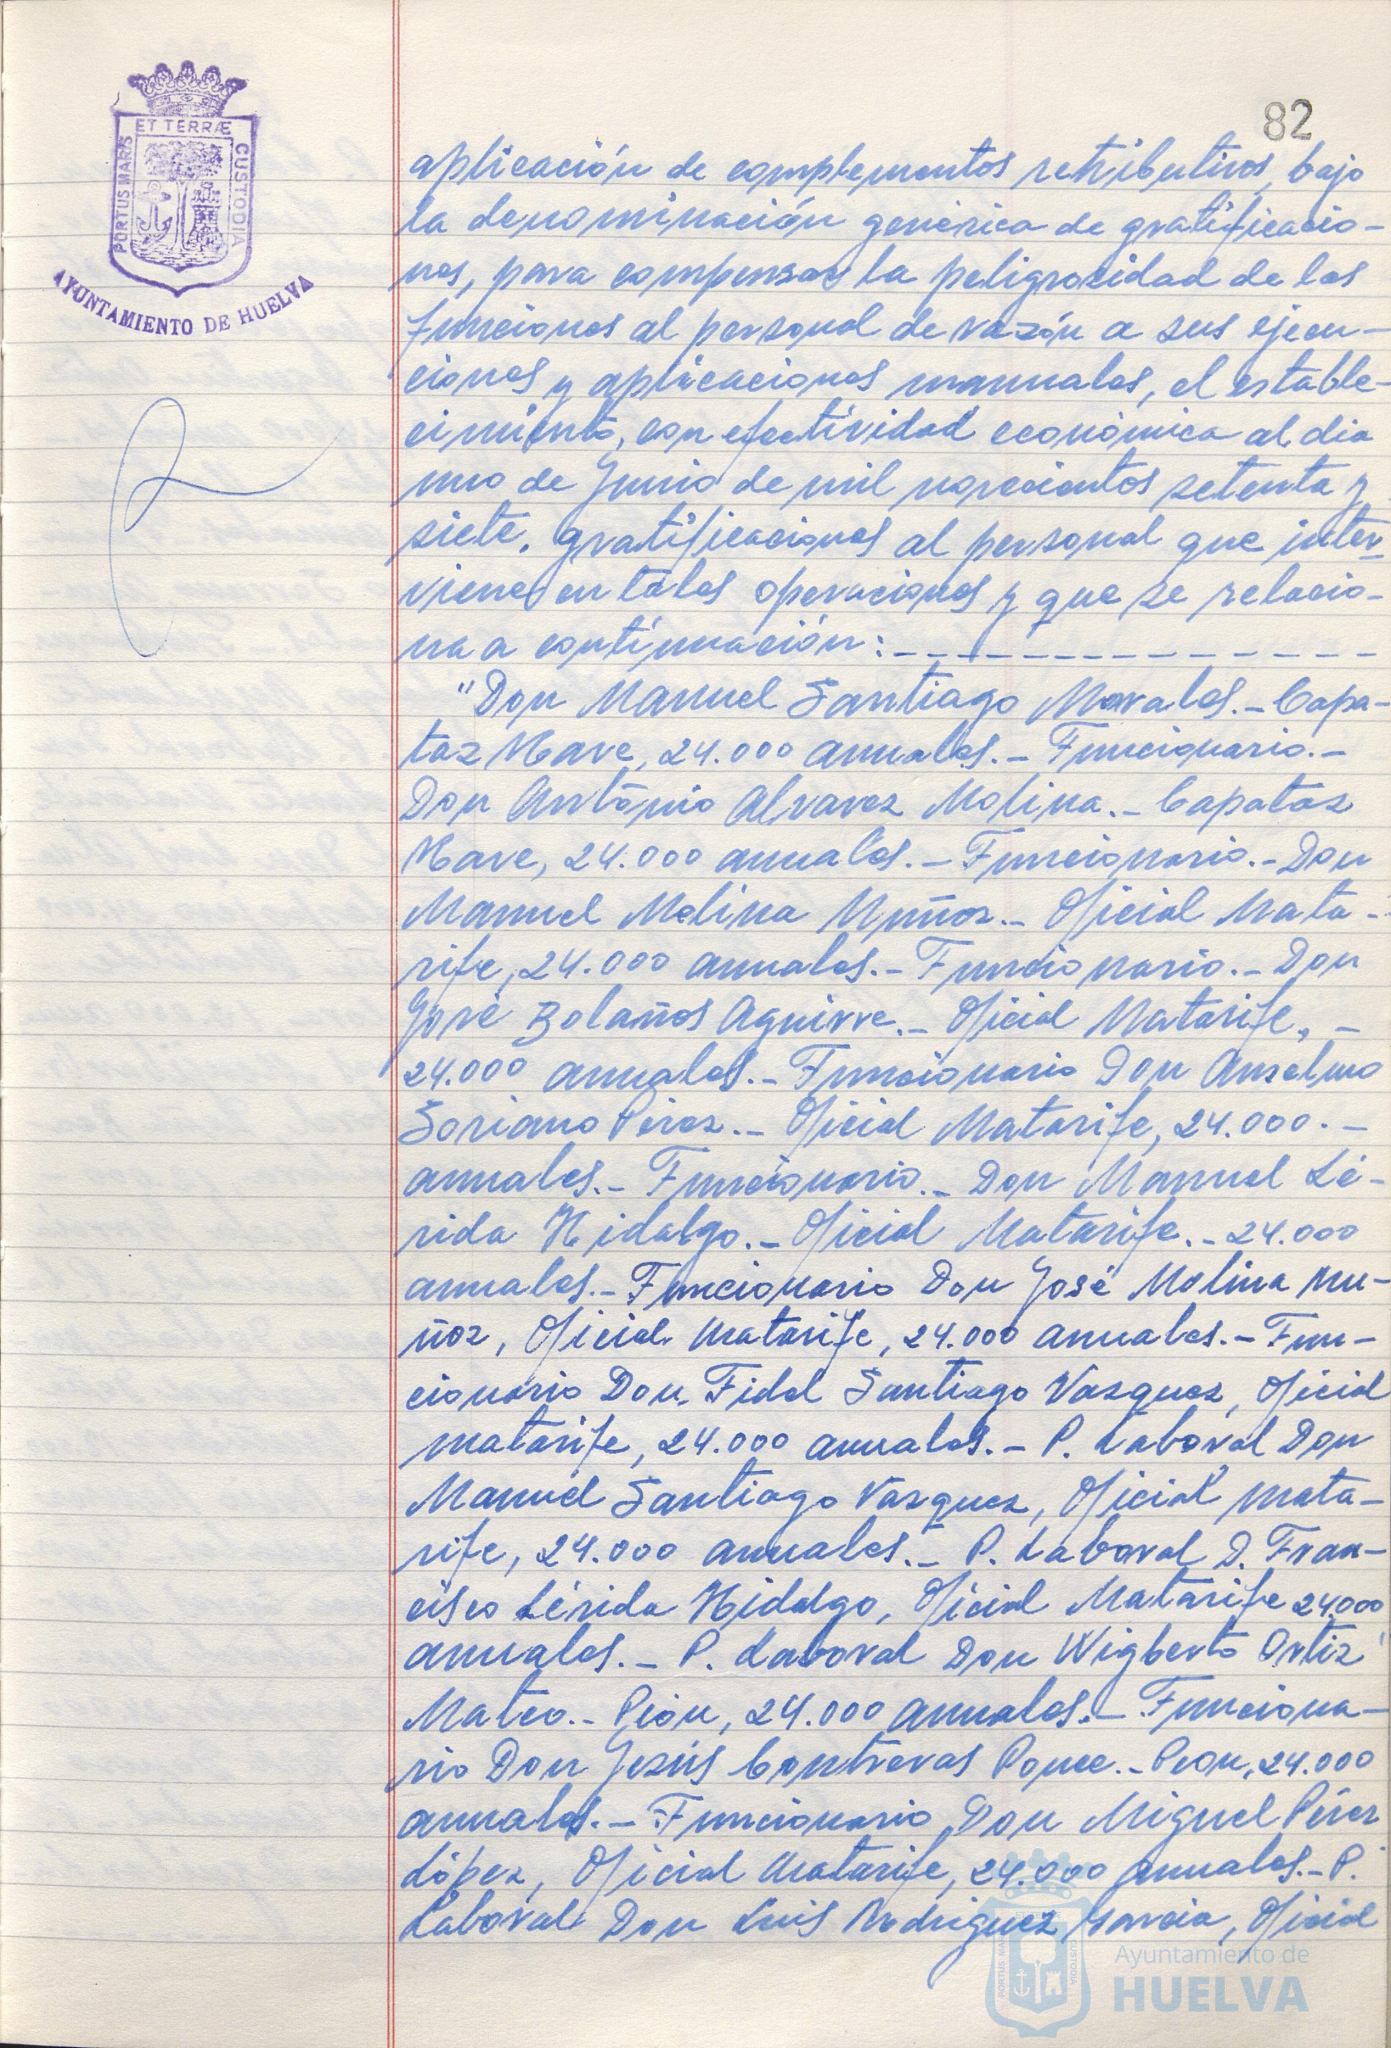 82
ET TERRÆ
PORTUS MARIS
CUSTODIA
AYUNTAMIENTO DE HUELVA
aplicación de complementos retributivos, bajo
la denominación genérica de gratificacio-
nes, para compensar la peligrosidad de las
funciones al personal de razón a sus ejecu-
ciones y aplicaciones manuales, el estable-
cimiento, con efectividad económica al dia
uno de Junio de mil novecientos setenta y
siete, gratificaciones al personal que inter-
viene en tales operaciones y que se relacio-
na a continuación:--------------
"Don Manuel Santiago Morales.- Capa-
taz Nave, 24.000 anuales.- Funcionario.-
Don António Alvarez Molina.- Capataz
Nave, 24.000 anuales.- Funcionario.- Don
Manuel Molina Muñoz.- Oficial Mata-
rife, 24.000 anuales.- Funcionario.- Don
José Bolaños Aguirre.- Oficial Matarife, -
24.000 anuales.- Funcionario Don Anselmo
Soriano Pérez.- Oficial Matarife, 24.000.-
anuales.- Funcionario.- Don Manuel Lé-
rida Hidalgo.- Oficial Matarife.- 24.000
anuales.- Funcionario Don José Molina Mu-
ñoz, Oficial Matarife, 24.000 anuales.- Fun-
cionario Don Fidel Santiago Vazquez, Oficial
matarife, 24.000 anuales.- P. Laboral Don
Manuel Santiago Vazquez, Oficial mata-
rife, 24.000 anuales.- P. Laboral D. Fran-
cisco Lérida Hidalgo, Oficial Matarife 24.000
anuales.- P. Laboral Don Wigberto Ortiz
Mateo.- Peon, 24.000 anuales.- Funciona-
rio Don Jesús Contreras Ponce.- Peon, 24.000
anuales.- Funcionario Don Miguel Pérez
López, Oficial Matarife, 24.000 anuales.- P.
Laboral Don Luis Rodriguez Garcia, Oficial
Ayuntamiento de
HUELVA